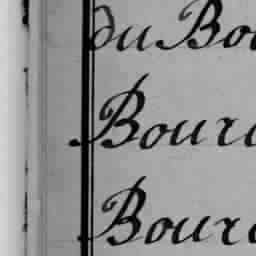 du Bou
Bour
Bour